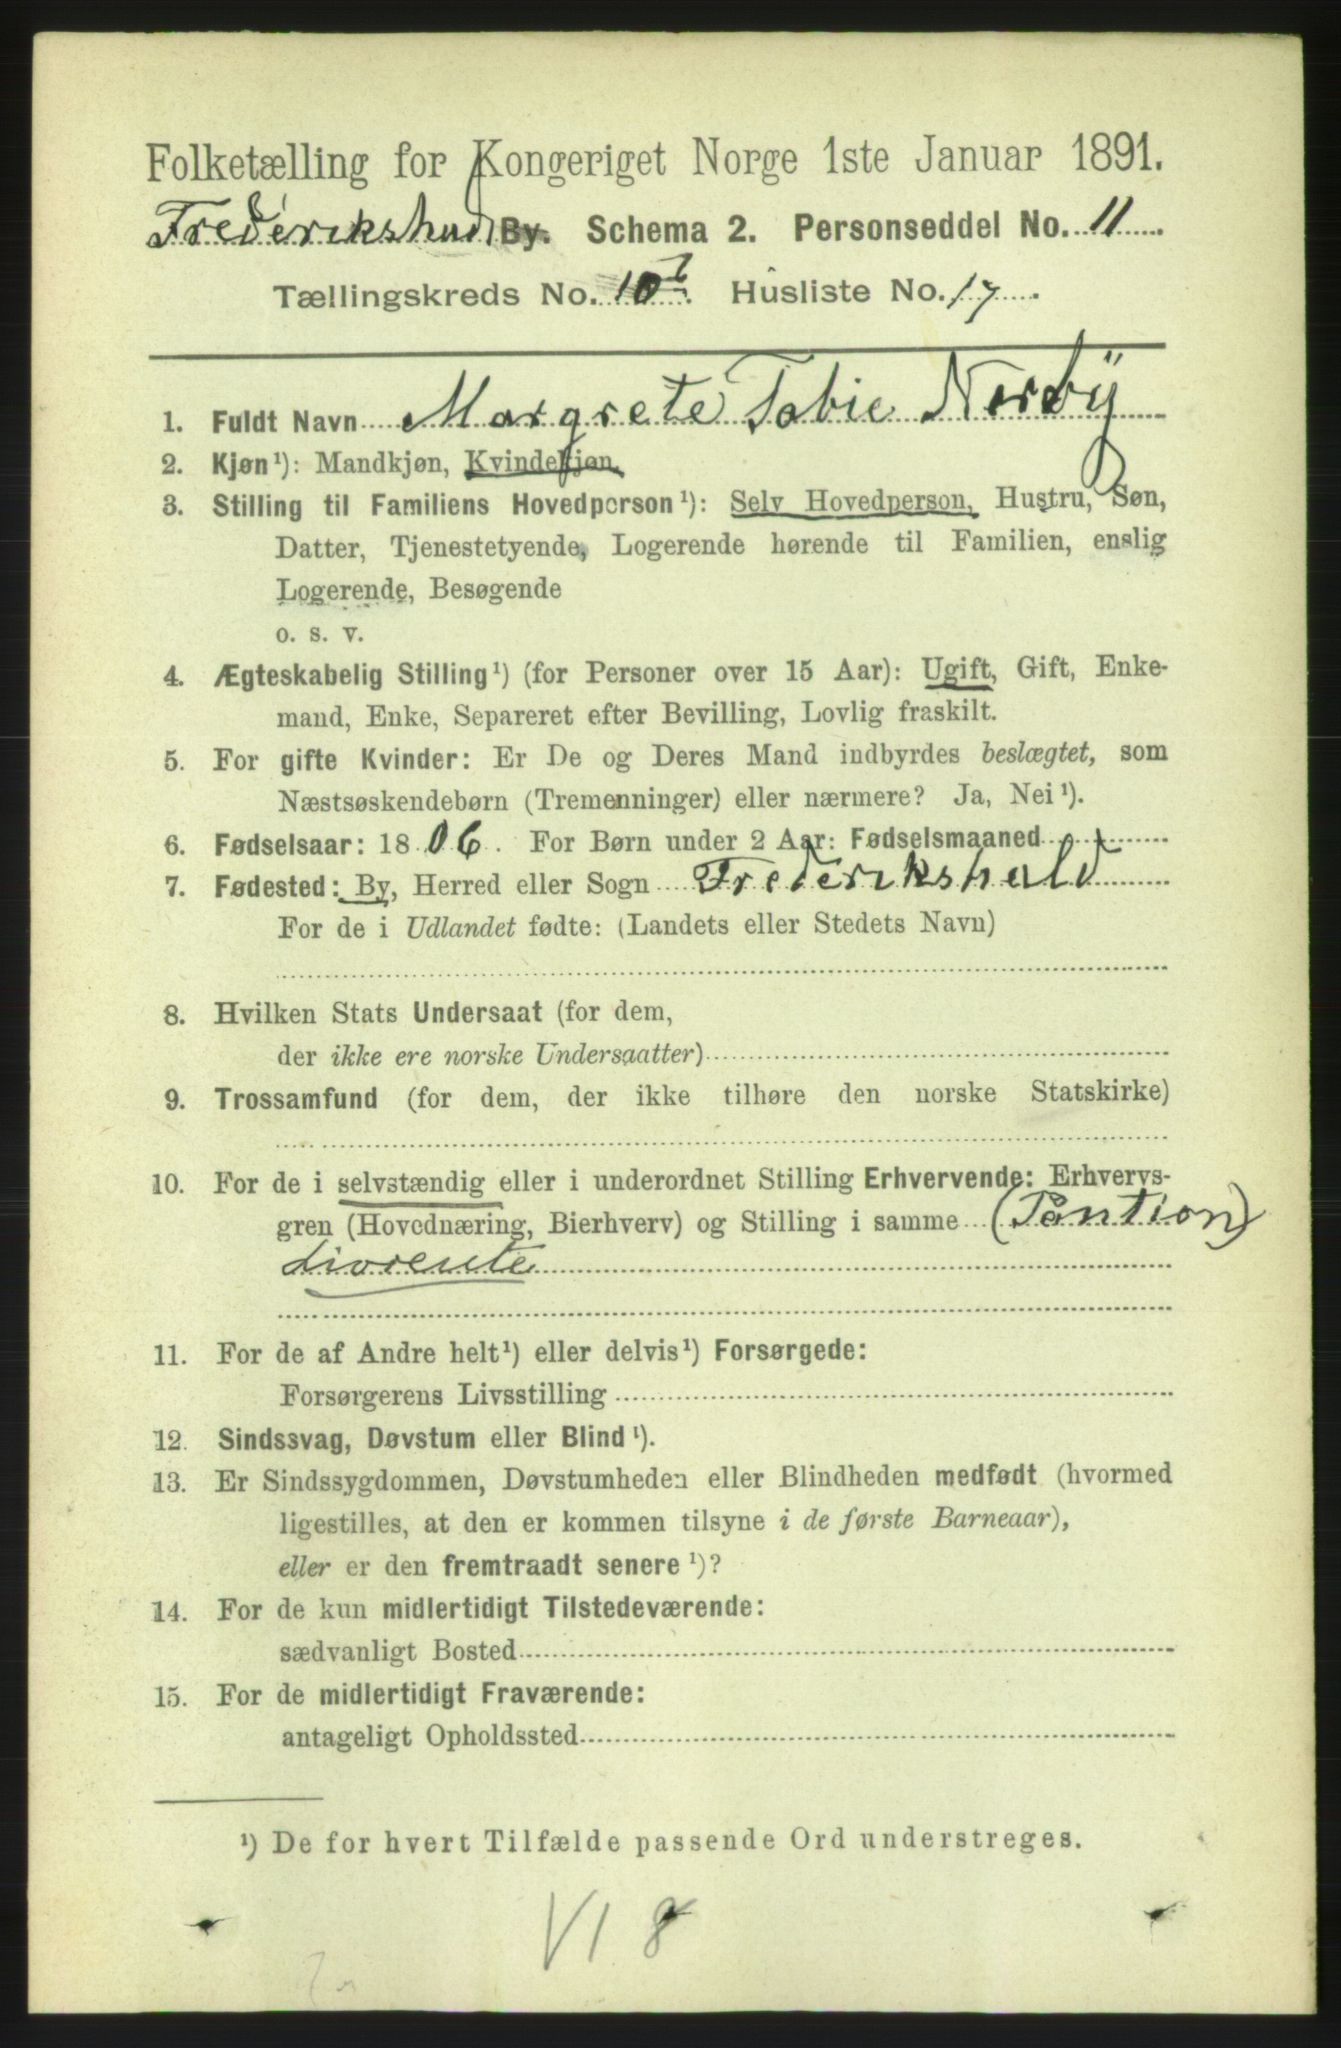 Folketælling for Kongeriget Norge 1ste Januar 1891.
Frederikshald By. Schema 2. Personseddel No. 11.
Tællingskreds No. 10 Husliste No. 17.
1. Fuldt Navn Margrete Tobie Norby
2. Kjøn¹): Mandkjøn, Kvindekjøn.
3. Stilling til Familiens Hovedperson¹): Selv Hovedperson, Hustru, Søn,
Datter, Tjenestetyende, Logerende hørende til Familien, enslig
Logerende, Besøgende
o. s. v.
4. Ægteskabelig Stilling¹) (for Personer over 15 Aar): Ugift, Gift, Enke-
mand, Enke, Separeret efter Bevilling, Lovlig fraskilt.
5. For gifte Kvinder: Er De og Deres Mand indbyrdes beslægtet, som
Næstsøskendebørn (Tremenninger) eller nærmere? Ja, Nei¹).
6. Fødselsaar: 1806. For Børn under 2 Aar: Fødselsmaaned
7. Fødested: By, Herred eller Sogn Frederikshald
For de i Udlandet fødte: (Landets eller Stedets Navn)
8. Hvilken Stats Undersaat (for dem,
der ikke ere norske Undersaatter)
9. Trossamfund (for dem, der ikke tilhøre den norske Statskirke)
10. For de i selvstændig eller i underordnet Stilling Erhvervende: Erhvervs-
gren (Hovednæring, Bierhverv) og Stilling i samme (Pantion)
Livrente
11. For de af Andre helt¹) eller delvis¹) Forsørgede:
Forsørgerens Livsstilling
12. Sindssvag, Døvstum eller Blind¹).
13. Er Sindssygdommen, Døvstumheden eller Blindheden medfødt (hvormed
ligestilles, at den er kommen tilsyne i de første Barneaar),
eller er den fremtraadt senere¹)?
14. For de kun midlertidigt Tilstedeværende:
sædvanligt Bosted
15. For de midlertidigt Fraværende:
antageligt Opholdssted
¹) De for hvert Tilfælde passende Ord understreges.
VI 8